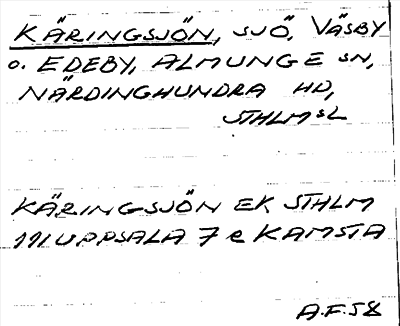 KÄRINGSJÖN, SJÖ, VÄSBY
o. EDEBY, ALMUNGE SN,
NÄRDINGHUNDRA HD,
STHLM SL
KÄRINGSJÖN EK STHLM
111 UPPSALA 7 e KAMSTA
A.F. 58